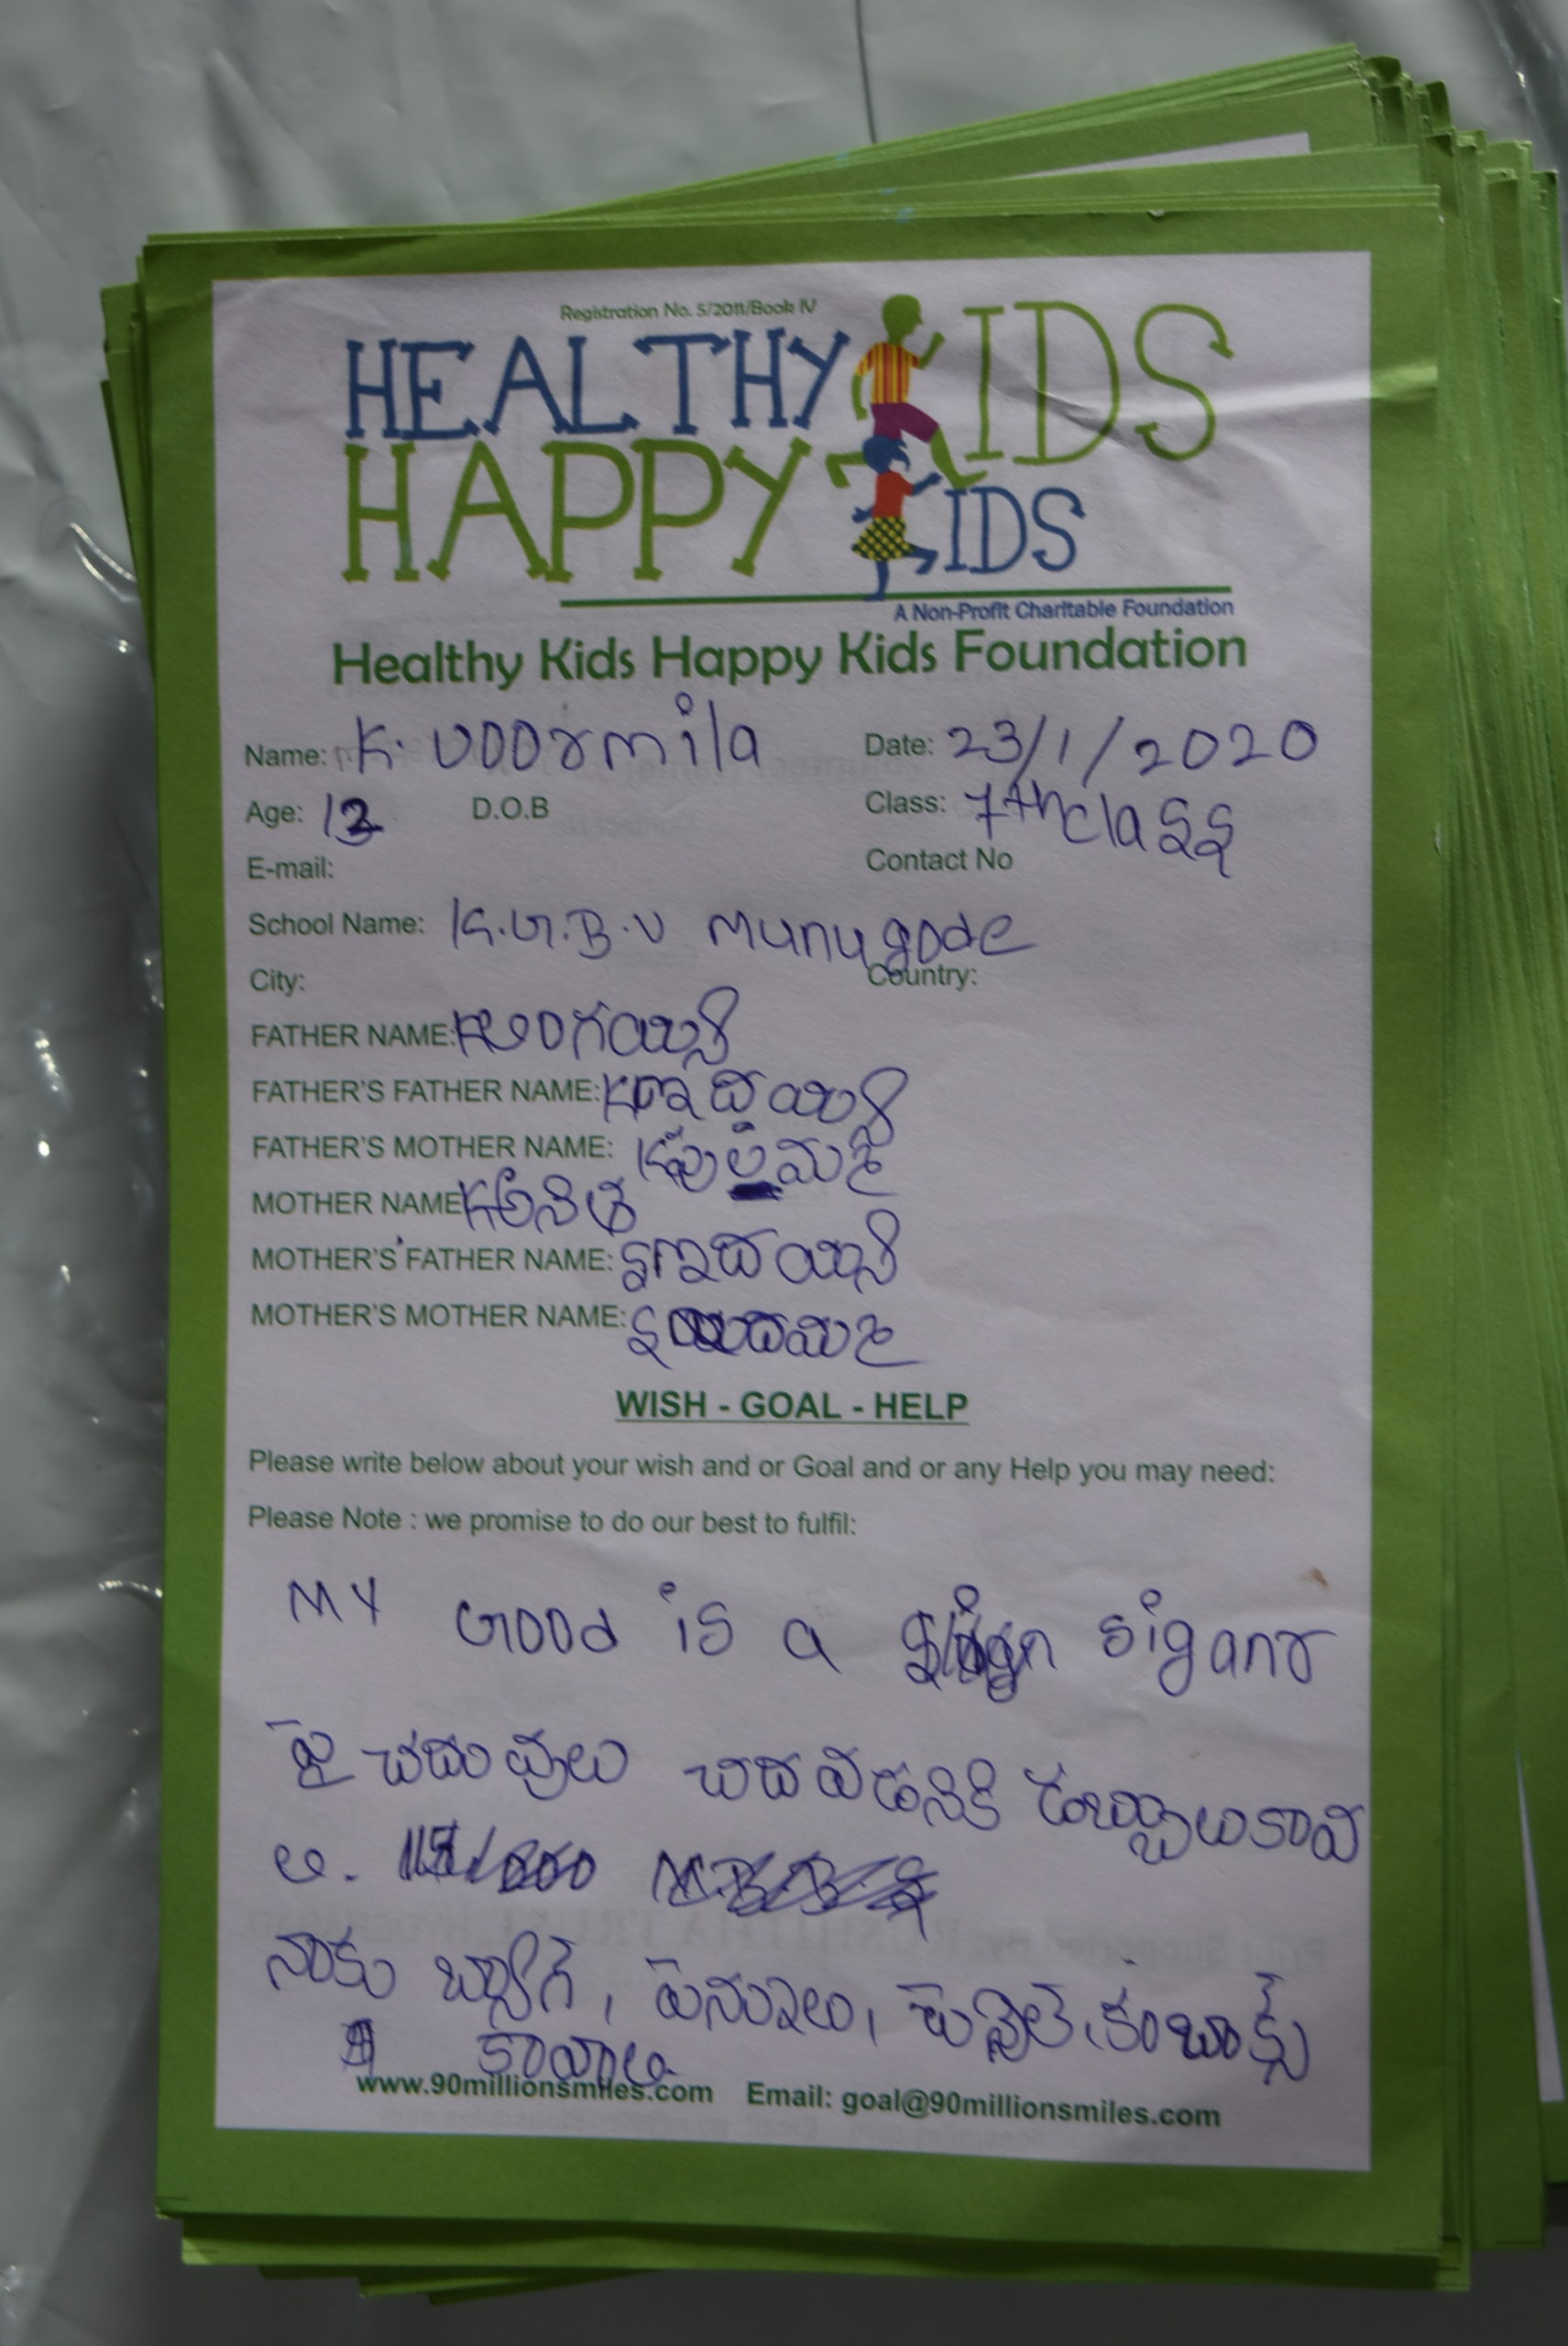 Registration No. 5/2011/Book IV
HEALTHY KIDS
HAPPY KIDS
A Non-Profit Charitable Foundation
Healthy Kids Happy Kids Foundation
Name: K. Voormila Date: 23/1/2020
Age: 12 D.O.B Class: 7th class
E-mail: Contact No
School Name: K.G.B.V Munugode
City: Country:
FATHER NAME: K లింగయ్య
FATHER'S FATHER NAME:
FATHER'S MOTHER NAME: K పుల్లమ్మ
MOTHER NAME K అనిత
MOTHER'S FATHER NAME:
MOTHER'S MOTHER NAME:
WISH - GOAL - HELP
Please write below about your wish and or Goal and or any Help you may need:
Please Note : we promise to do our best to fulfil:
MY Good is a siganr
పై చదువులు చదవడనికి డబ్బులు కావ
లి.
నాకు బ్యాగ్, పెనులు,
కావాలి
www.90millionsmiles.com Email: goal@90millionsmiles.com